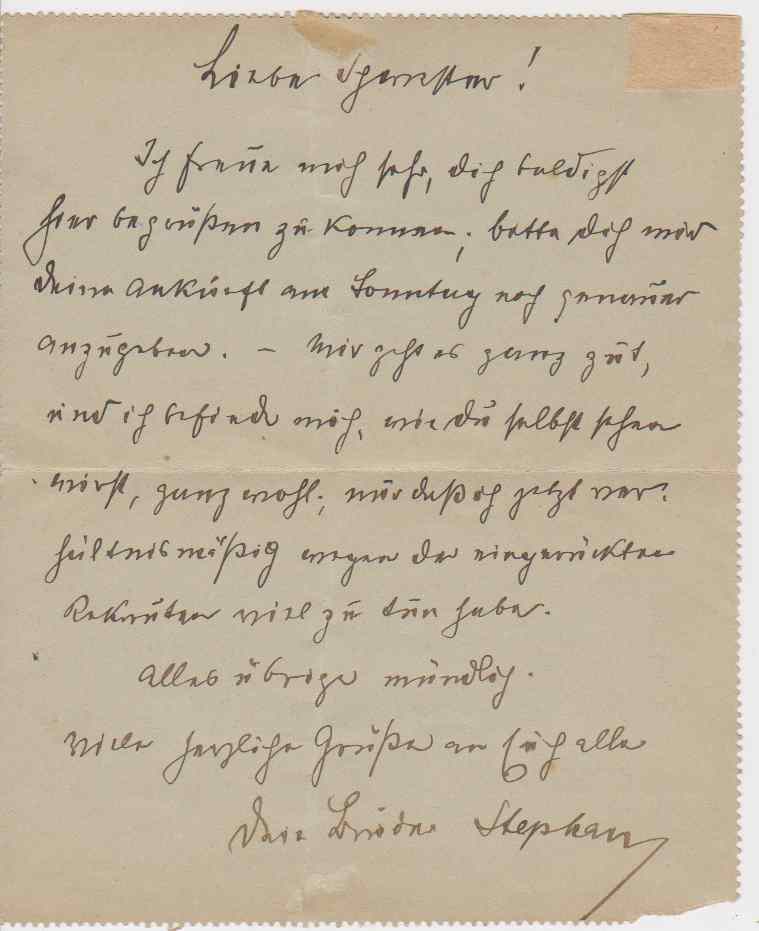 Liebe Schwester!
Ich freue mich sehr, dich baldigst
hier begrüßen zu können; bitte dich mir
deine Ankunft am Sonntag noch genauer
anzugeben. – Mir geht es ganz gut,
und ich befinde mich, wie du selbst sehen
wirst, ganz wohl; nur daß ich jetzt ver-
hältnismäßig wegen der eingerückten
Rekruten viel zu tun habe.
Alles übrige mündlich.
Viele herzliche Grüße an Euch alle
Dein Bruder Stephan